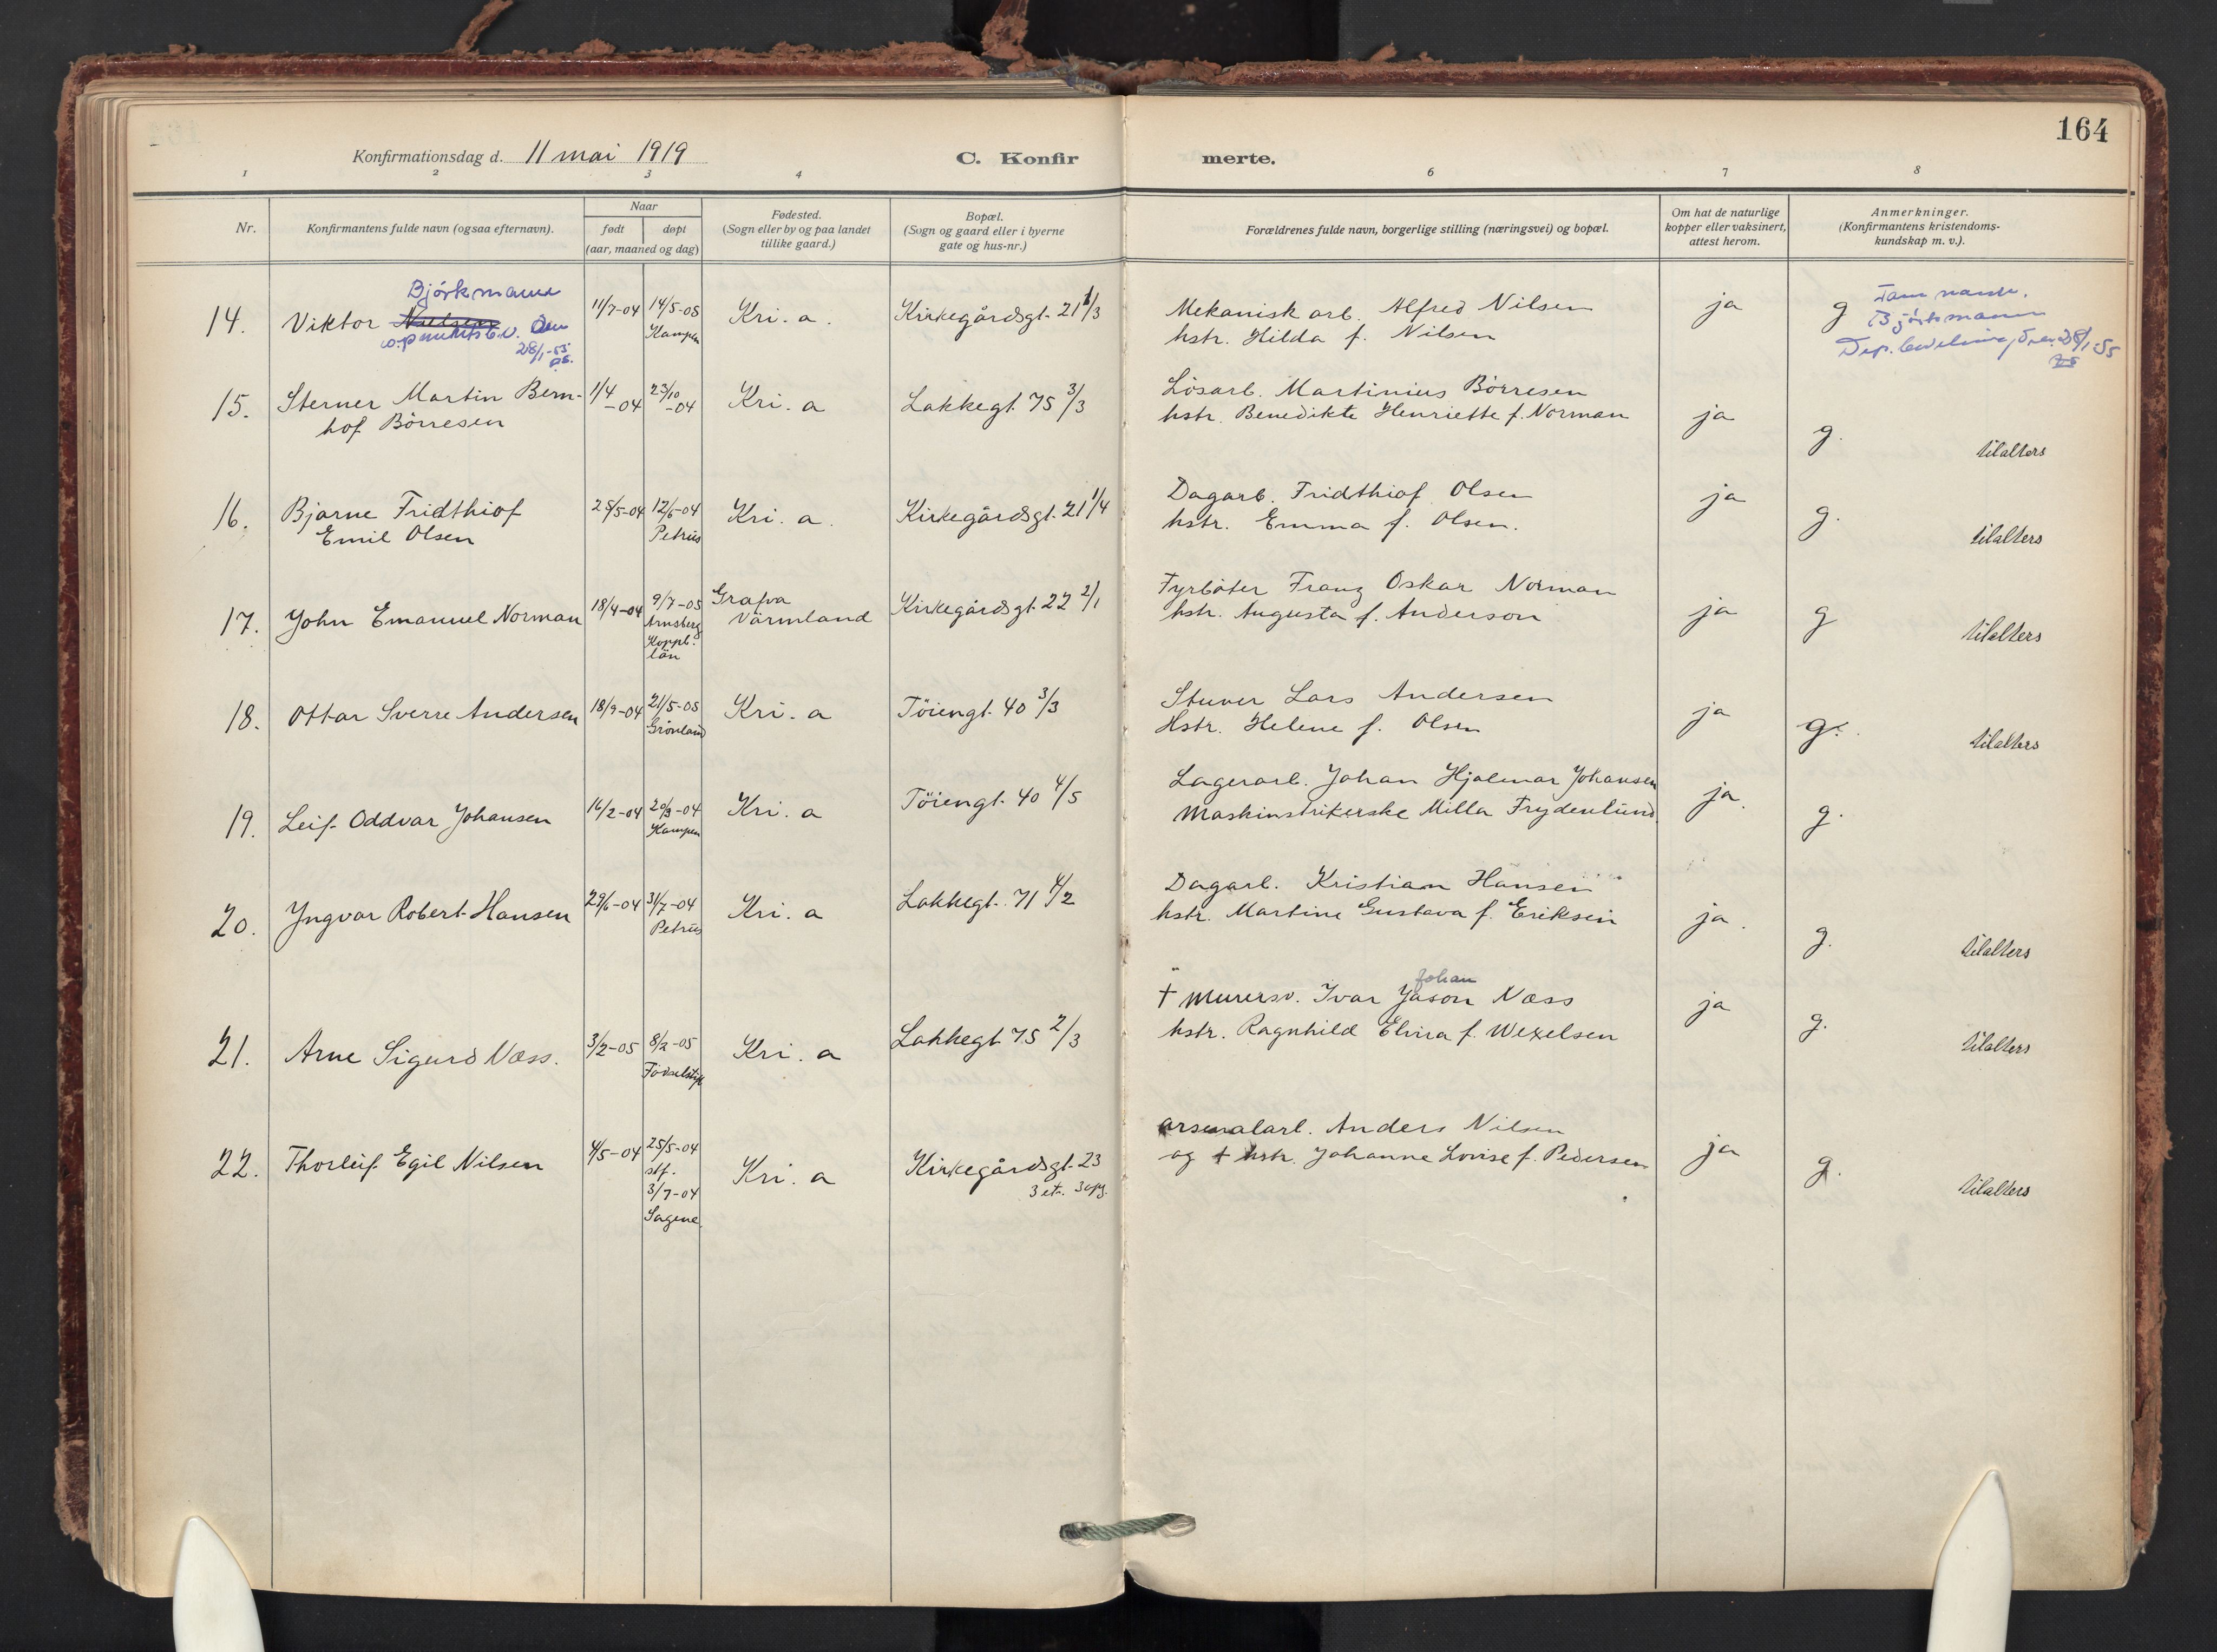 164
Konfirmationsdag d. 11 mai 1919
C. Konfir
merte.
1 2 3 4 6 7 8
Nr.
Konfirmantens fulde navn (ogsaa efternavn).
Naar
født døpt
(aar, maaned og dag)
Fødested.
(Sogn eller by og paa landet
tillike gaard.)
Bopæl.
(Sogn og gaard eller i byerne
gate og hus-nr.)
Forældrenes fulde navn, borgerlige stilling (næringsvei) og bopæl.
Om hat de naturlige
kopper eller vaksinert,
attest herom.
Anmerkninger.
(Konfirmantens kristendoms-
kundskap m. v.).
Björkmann
14. Viktor Nielsen
28/1-55
11/7-04
14/5-05
Kampen
Kri. a.
Kirkegårdsgt. 21 1/3
Mekanisk arb. Alfred Nilsen
hstr. Hilda f. Nilsen
ja
g
Fam navn.
Björkmann
Dep. bevilning, 28/1-55
15. Sterner Martin Bern-
hof Börresen
1/4
-04
23/10
-04
Kri. a
Lakkegt. 75 3/3
Lösarb. Martinius Börresen
hstr. Benedikte Henriette f. Norman
ja
g.
tilalters
16. Bjarne Fridthiof
Emil Olsen
25/5-04
12/6-04
Petrus
Kri. a.
Kirkegårdsgt. 21 1/4
Dagarb. Fridthiof Olsen
hstr. Emma f. Olsen.
ja
g.
tilalters
17. John Emanuel Norman
18/4-04
9/7-05
Arnsberg
Koppb.
län
Grafva
Värmland
Kirkegårdsgt. 22 2/1
Fyrböter Franz Oskar Norman
hstr. Augusta f. Anderson
ja
g
tilalters
18. Ottar Sverre Andersen
18/9-04
21/5-05
Grönland
Kri. a
Töiengt. 40 3/3
Stuver Lars Andersen
Hstr. Helene f. Olsen
ja
g.
tilalters
19. Leif Oddvar Johansen
16/2-04
20/3-04
Kampen
Kri. a
Töiengt. 40 4/5
Lagerarb. Johan Hjalmar Johansen
Maskinstrikerske Milla Frydenlund.
ja.
g.
20. Yngvar Robert Hansen
29/6-04
31/7-04
Petrus
Kri. a
Lakkegt. 71 4/2
Dagarb. Kristian Hansen
hstr. Martine Gustava f. Eriksen
ja.
g.
tilalters
21. Arne Sigurd Næss.
3/2-05
8/2-05
Födselstift
Kri. a
Lakkegt 75 2/3
Johan
† Murersv. Ivar Jason Næss
hstr. Ragnhild Elvira f. Wexelsen
ja
g.
tilalters
22. Thorleif Egil Nilsen
4/5-04
25/5-04
stf.
3/7-04
Sagene.
Kri. a
Kirkegårdsgt. 23
3 et. 3 opg.
Arsenalarb. Anders Nilsen
og † hstr. Johanne Lovise f. Pedersen
ja
g.
tilalters